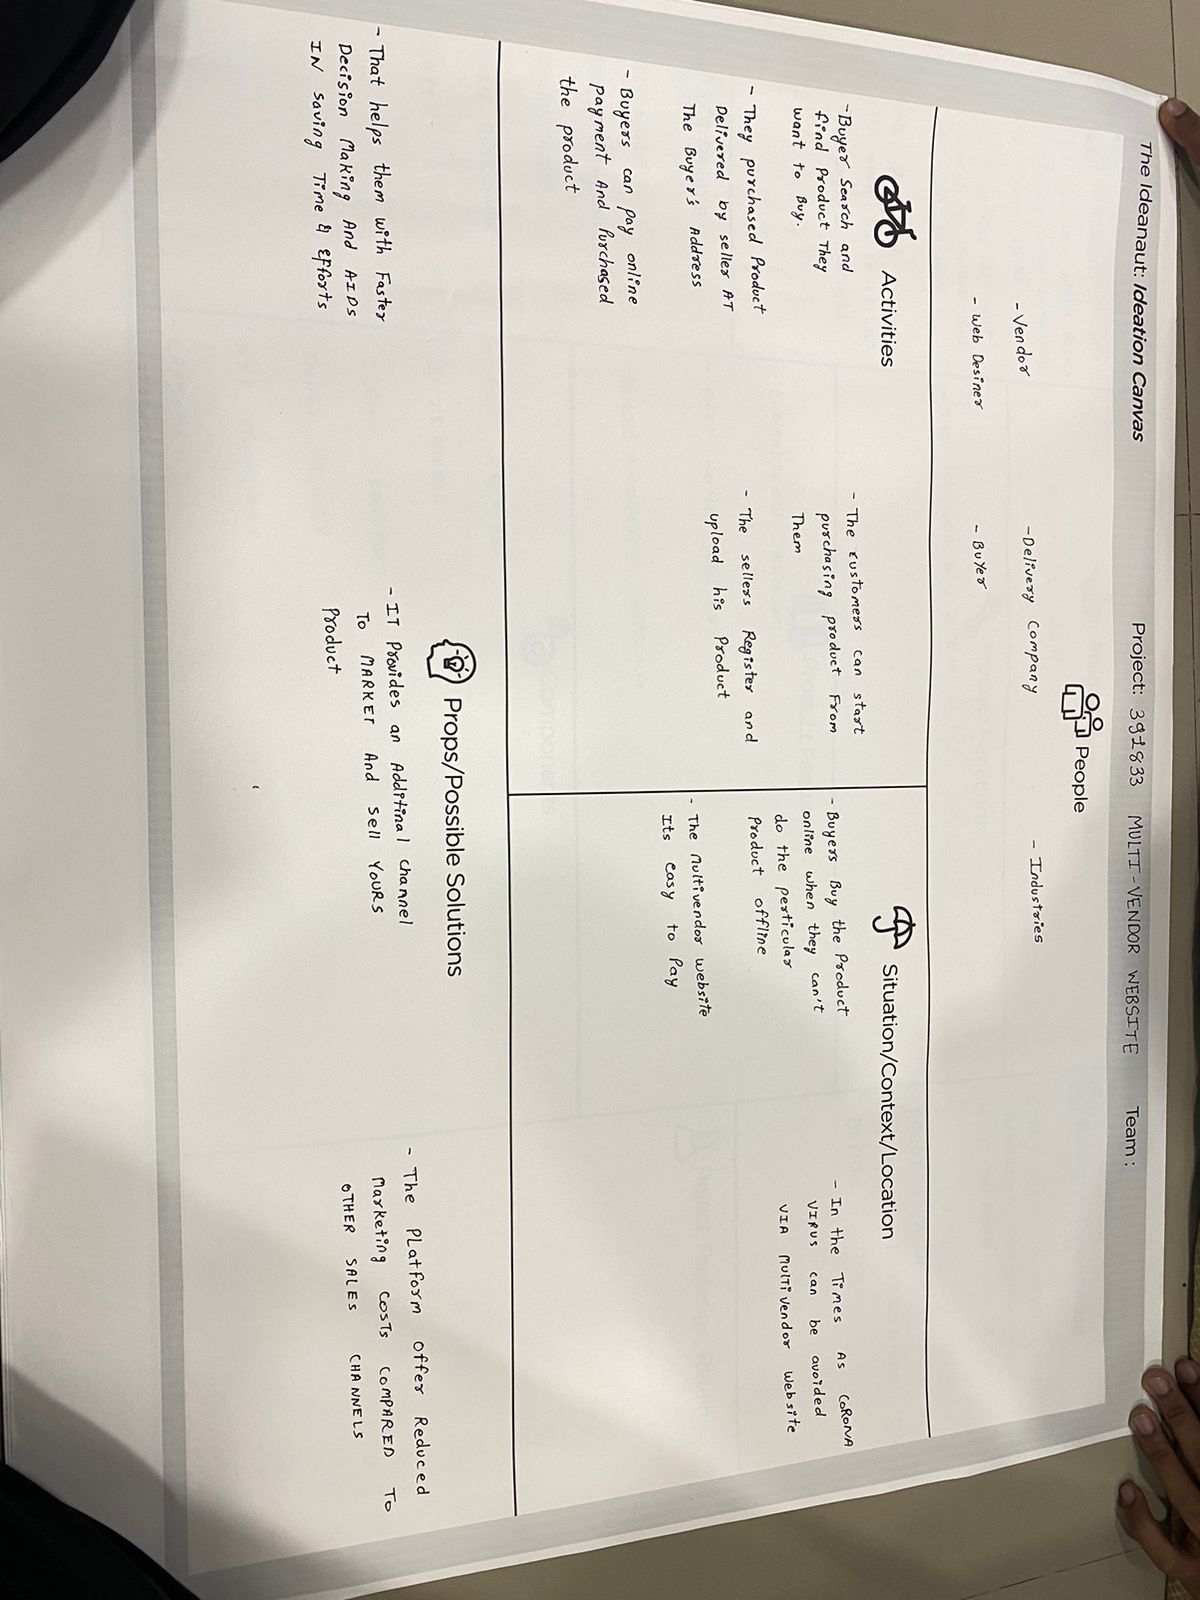 The Ideanaut: Ideation Canvas
Project: 391833 MULTI-VENDOR WEBSITE
Team :
People
- Vendor
- Web Desiner
- Delivery Company
- Buyer
- Industries
Activities
- Buyer Search and
find Product They
want to Buy.
- They purchased Product
Delivered by seller AT
The Buyer's Address
- Buyers can pay online
payment And Purchased
the product
- The customers can start
purchasing product From
Them
- The sellers Register and
upload his Product
Situation/Context/Location
- Buyers Buy the Product
online when they can't
do the perticular
product offline
- The multivendor website
Its easy to Pay
- In the Times As CoRoNA
VIRUS can be avoided
VIA multivendor Website
Props/Possible Solutions
- That helps them with Faster
Decision Making And AIDs
IN saving Time & efforts
- IT Provides an Additinal channel
To MARKET And sell YOURS
Product
- The PLatform offer Reduced
Marketing costs COMPARED TO
OTHER SALES CHANNELS